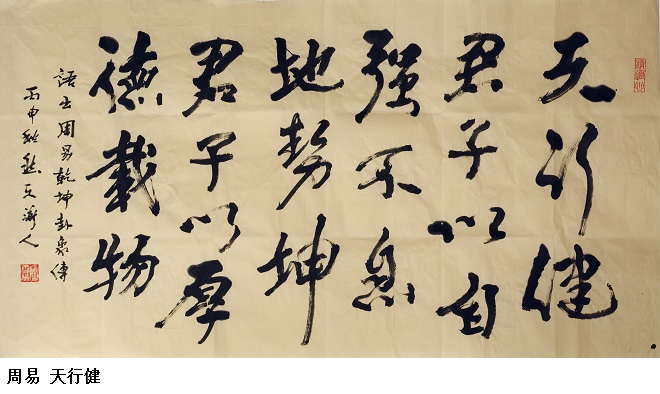 天行健
君子以自
强不息
地勢坤
君子以厚
德載物
語出周易乾坤卦象傳
丙申秋
周易 天行健